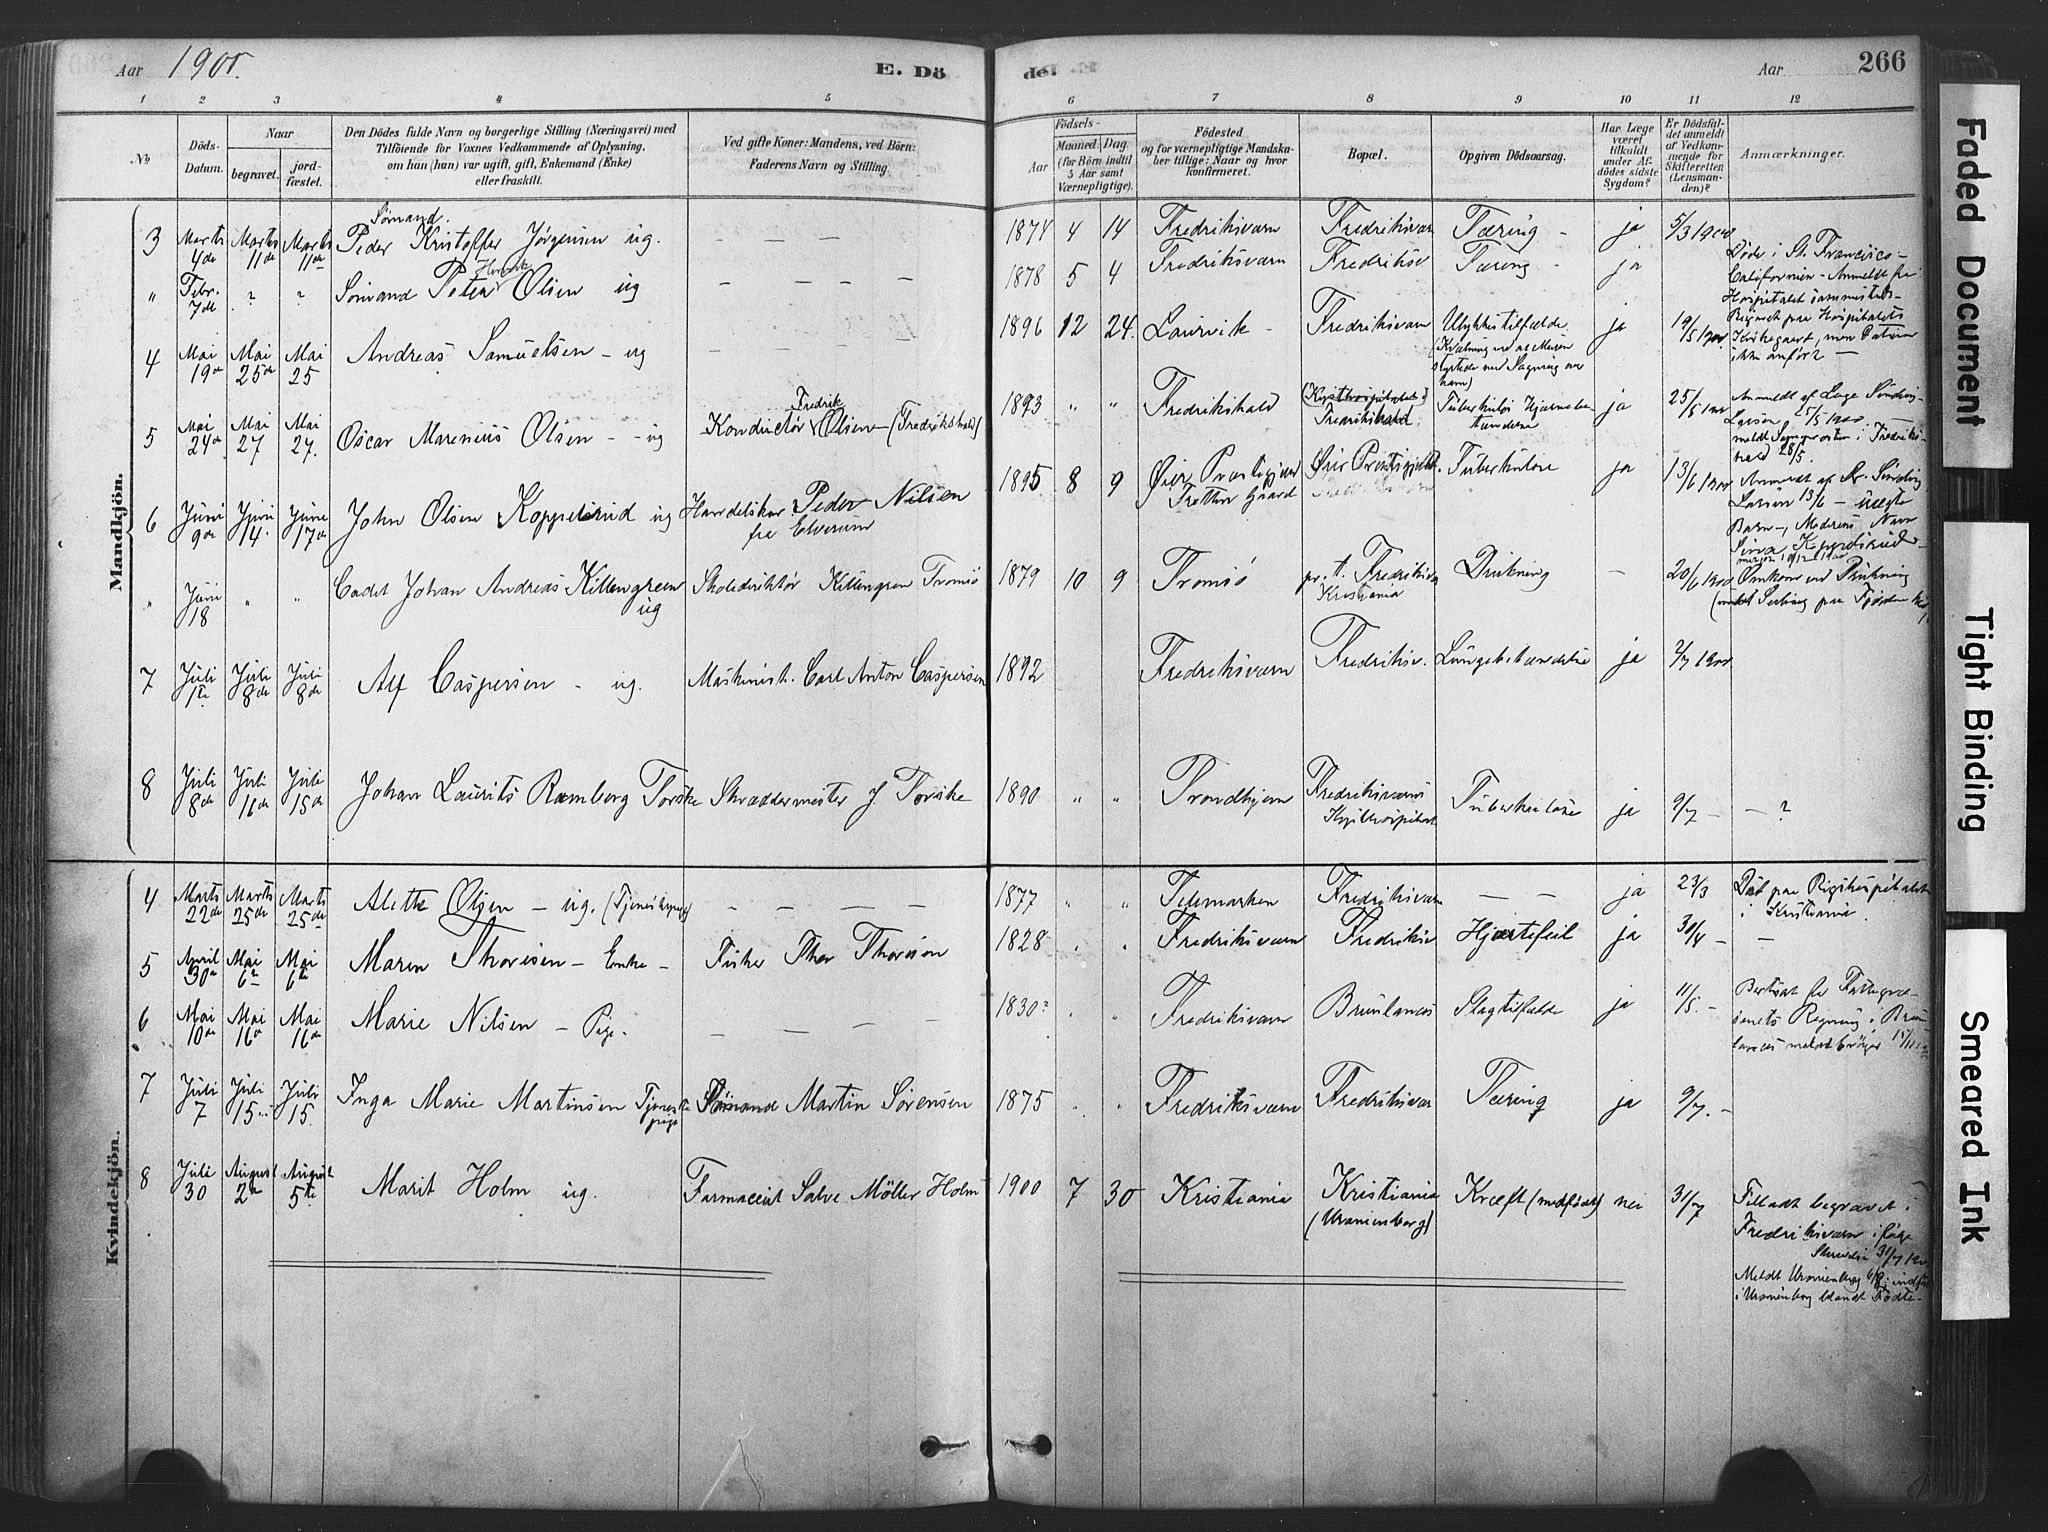 Aar 1900.
E. Dö
de.
Aar
266
1 2 3 4 5 6 7 8 9 10 11 12
No
Döds-Datum.
Naar
begravet.
jordfæstet.
Den Dödes fulde Navn og borgerlige Stilling (Næringsvei) med
Tilföiende for Voxnes Vedkommende af Oplysning,
om han (hun) var ugift, gift, Enkemand (Enke)
eller fraskilt.
Ved gifte Koner: Mandens, ved Börn:
Faderens Navn og Stilling.
Födsels-
Aar
Maaned. Dag.
(for Börn indtil
5 Aar samt
Værnepligtige).
Födested
og for værnepligtige Mandskaber tillige: Naar og hvor
konfirmeret.
Bopæl.
Opgiven Dödsaarsag.
Har Læge
været
tilkaldt
under Afdödes sidste
Sygdom?
Er Dödsfaldet anmeldt
af Vedkommende for
Skifteretten
(Lensmanden)?
Anmærkninger.
Mandkjön.
3 Marts 4de Marts 11de Marts 11de Sömand. Peder Kristoffer Jörgensen ug. — — — 1874 4 14 Fredriksværn Fredriksværn Tæring - ja 5/3 1900
" Febr. 7de ? ? Sömand Peter Henrik Olsen ug — — — 1878 5 4 Fredriksværn Fredriksv Tæring - ja Döde i St. Francisco-
Californien - Anmeldt fra
Hospitalet sammesteds-
Begravet paa Hospitalets
Kirkegaard, men Datum
ikke anfört —
4 Mai 19de Mai 25de Mai 25 Andreas Samuelsen - ug — — — 1896 12 24. Laurvik - Fredriksværn Ulykkestilfælde. (Kvælning ved at Muren styrtede ned Sagning over ham) ja 19/5 1900
5 Mai 24de Mai 27 Mai 27. Oscar Marenius Olsen - - ug Konductör Fredrik Olsen - (Fredrikshald) 1893 " " Fredrikshald (Kysthospitalet) Fredrikshald. Tuberkulös Hjernebetændelse ja 25/5 1900 Anmeldt af Læge Sinding-
Larsen 25/5 1900 —
meldt Sognepresten i Fredrikshald 28/5.
6 Juni 9de Juni 14. Juni 17de John Olsen Koppelsrud ug Handelskar. Peder Nilsen fra Elverum 1895 8 9 Öier Præstegjæld Tretten Gaard Öier Præstegjæld. Tuberkulose ja 13/6 1900 Anmeldt af Dr. Sinding
Larsen 13/6 - uægte
Barn -, Moderens Navn
" Juni 18 " " Cadet Johan Andreas Killengreen ug Skoledirektör Killengreen Tromsö 1879 10 9 Tromsö pr. t. Fredriksv Kristiania Drukning — 20/6 1900 Omkom ved Drukning
(under Seiling paa Fjorden
7 Juli 1ste Juli 8de Juli 8de Alf Caspersen - ug. Maskinist. Carl Anton Caspersen 1892 Fredriksværn Fredriksv. Lungebetændelse ja 2/7 1900
8 Juli 8de Juli 16de Juli 15de Johan Laurits Ramberg Torske Skræddermester J Torske 1890 " " Trondhjem Fredriksværns Kysthospital Tuberkulose ja 9/7 — — ?
Kvindekjön.
4 Marts 22de Marts 25de Marts 25de Alette Olsen - ug. (Tjenestepige) — — — — 1877 " " Telemarken Fredriksværn — — ja 23/3 Död paa Rigshospitalet
i Kristiania.
5 April 30te Mai 6te Mai 6te Maren Thorisen - Enke - Fisker Thor Thorisen 1828 " " Fredriksværn Fredriksv Hjertefeil ja 30/4 — —
6 Mai 10de Mai 16de Mai 16de Marie Nilsen - Pige. — — — — 1830? " " Fredriksværn Brunlanæs Slagtilfælde ja 11/5. - Bortsat fra Fattigvæsenets Regning i Brunlanæs
7 Juli 7 Juli 15 Juli 15. Inga Marie Martinsen Tjenestepige Sömand Martin Sörensen 1875 " " Fredriksværn Fredriksvær Tæring ja 9/7. - —
8 Juli 30 August 2den August 5te Marit Holm ug. Farmaceut Salve Möller Holm 1900 7 30 Kristiania Kristiania (Uranienborg) Kræft (medfödt) nei 31/7 Tilladt begravet i
Fredriksværn ifölge
Skrivelse 31/7 1900
Meldt Uranienborg 6/8; indfört
i Uranienborg blandt Födte-
Faded Document
Tight Binding
Smeared Ink